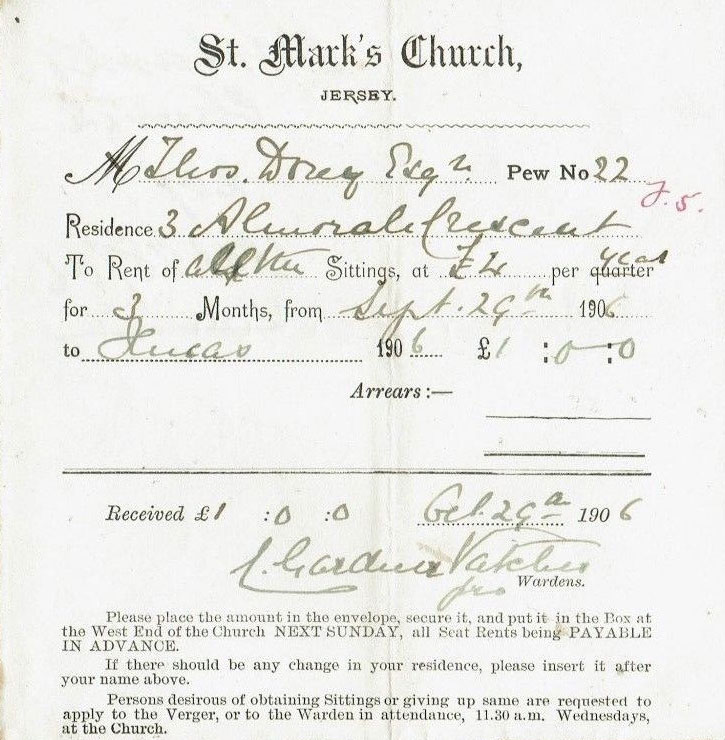 St. Mark's Church,
JERSEY.
M Thos. Dorey Esqr. Pew No 22
J. 5.
Residence 3 Almorah Crescent
To Rent of all the Sittings, at £4 per quarter year
for 3 Months, from Sept. 29th 1906
to Xmas 1906 £1 : 0 : 0
Arrears :—
Received £1 : 0 : 0 Oct. 29th 1906
Gardner
pro Wardens.
Please place the amount in the envelope, secure it, and put it in the Box at
the West End of the Church NEXT SUNDAY, all Seat Rents being PAYABLE
IN ADVANCE.
If there should be any change in your residence, please insert it after
your name above.
Persons desirous of obtaining Sittings or giving up same are requested to
apply to the Verger, or to the Warden in attendance, 11.30 a.m. Wednesdays,
at the Church.